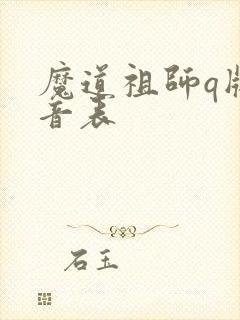 魔道祖師q版
音表
石玉